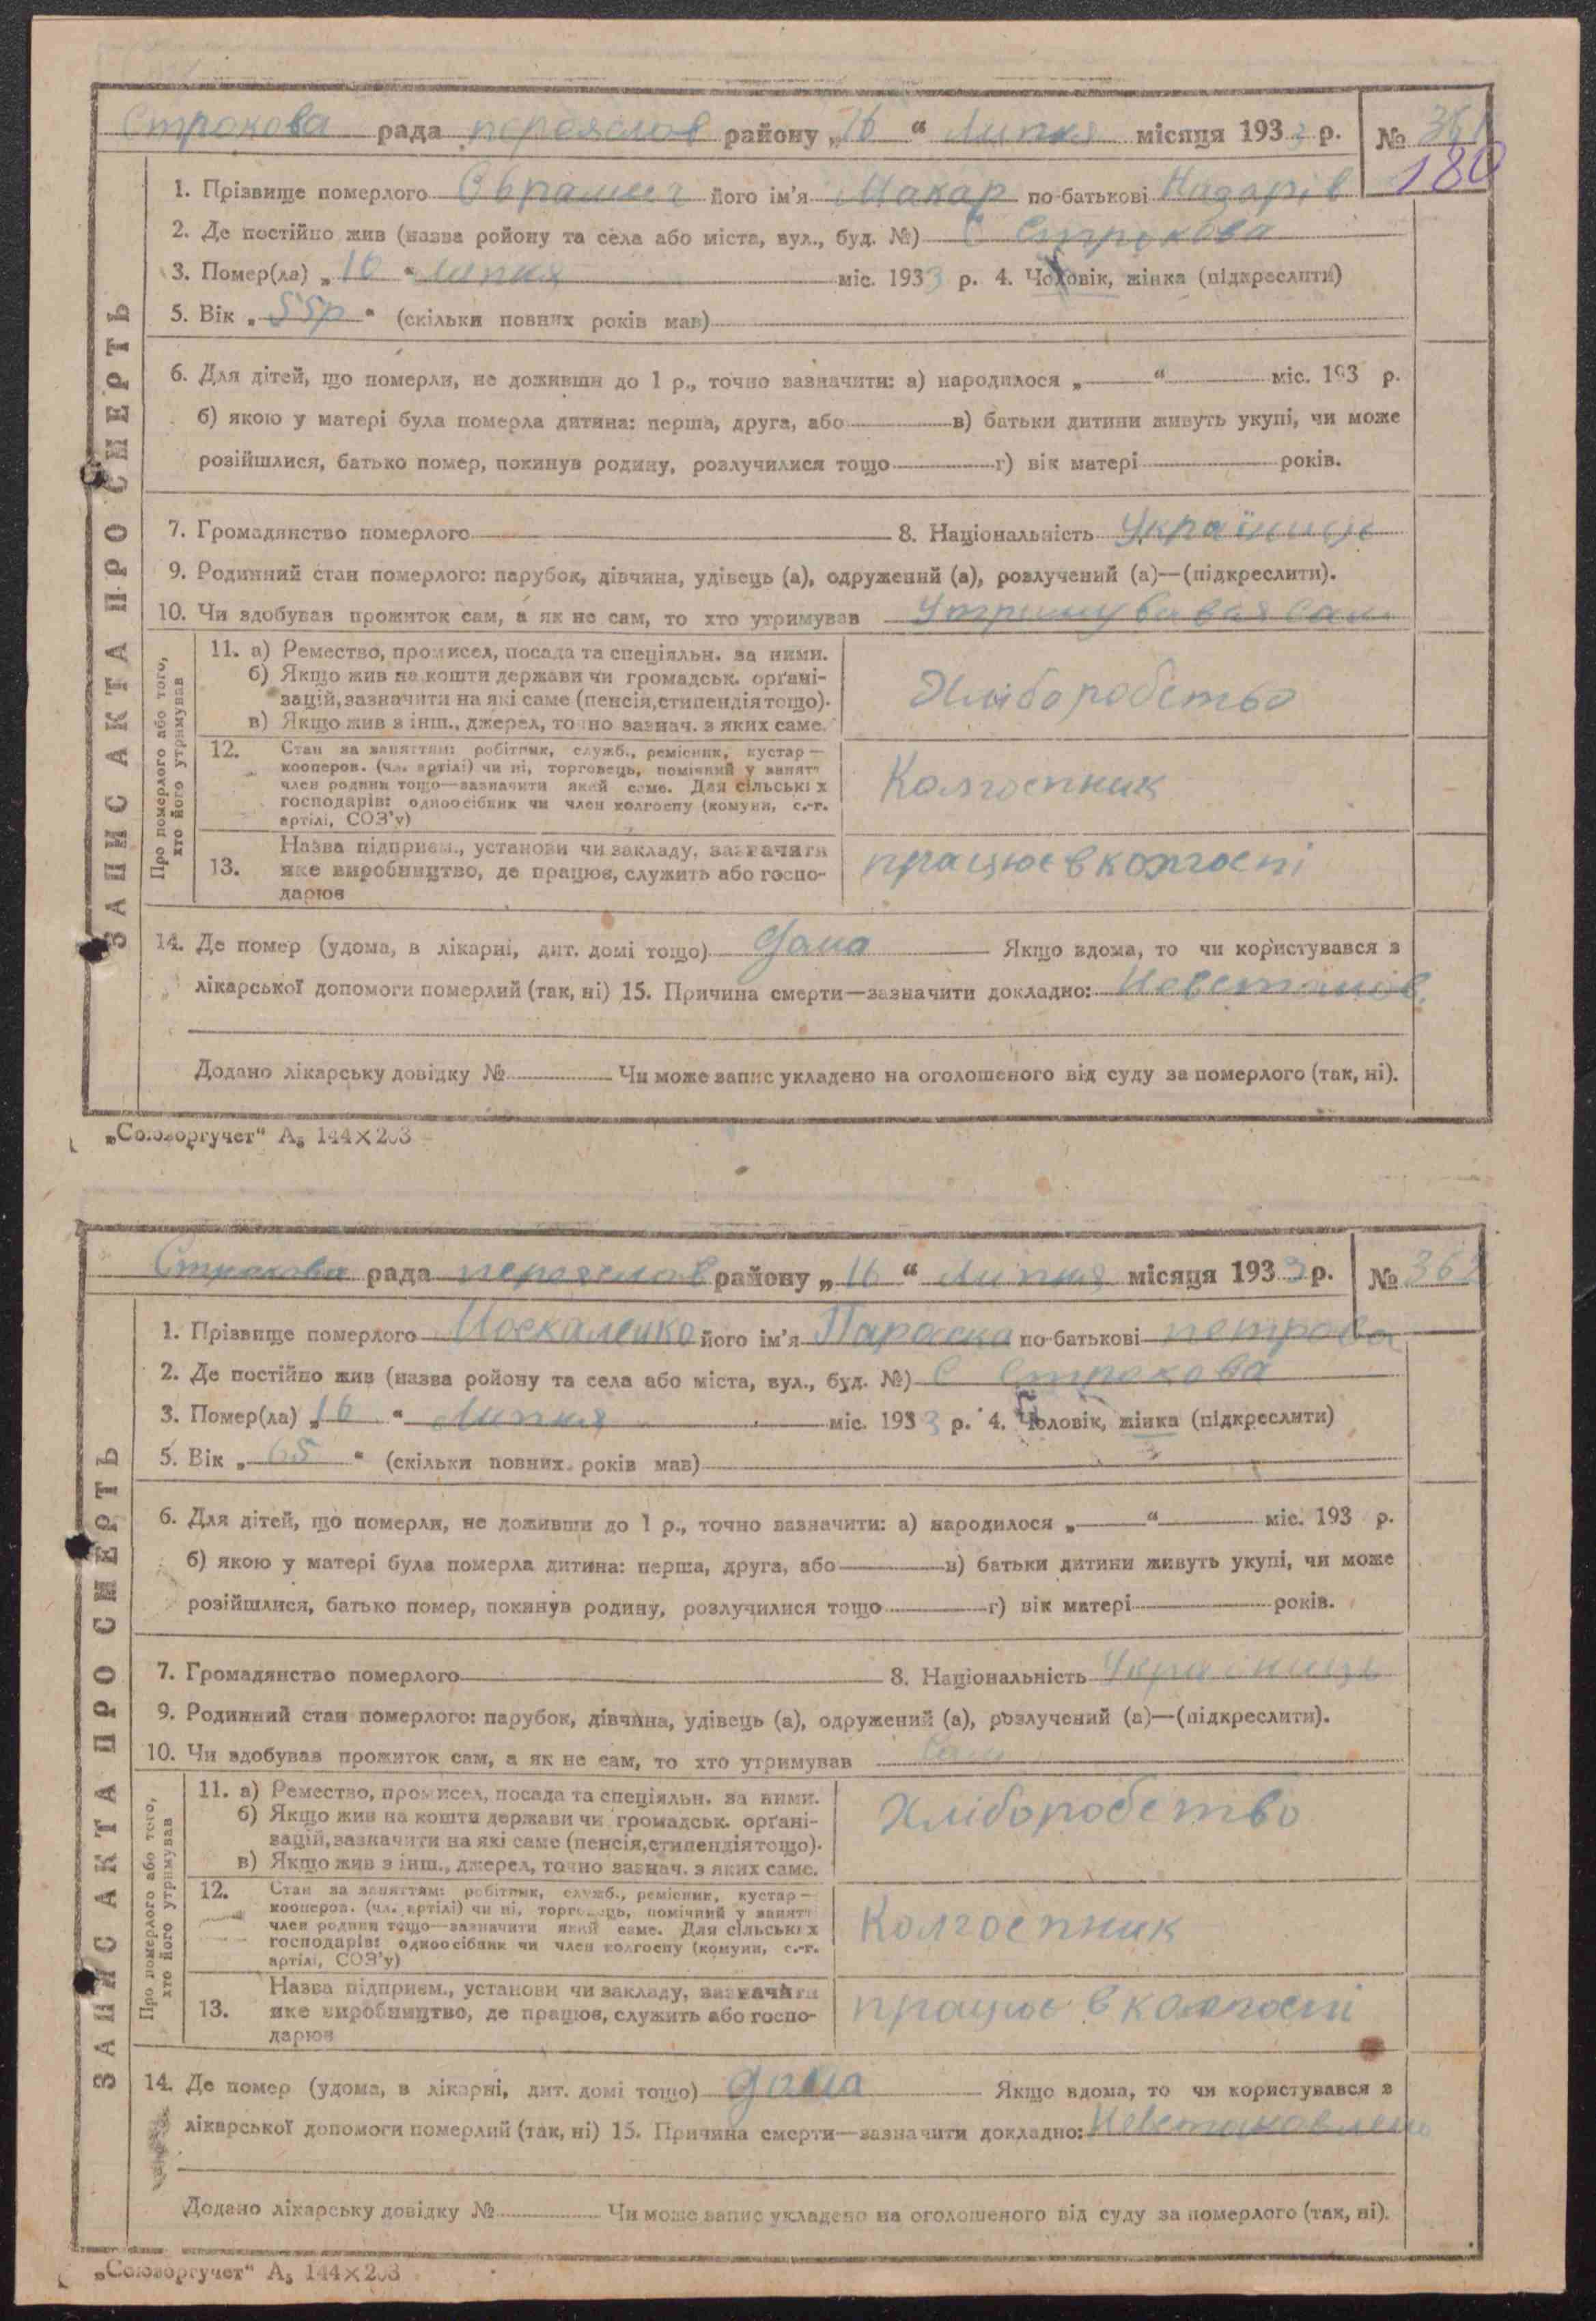 Строкова рада переяслав району „16“ Липня місяця 1933 р. № 361
180
1. Прізвище померлого Аврамич його ім'я Макар по-батькові Назарів
2. Де постійно жив (назва ройону та села або міста, вул., буд. №) С Строкова
3. Помер(ла) „16“ липня міс. 1933 р. 4. Чоловік, жінка (підкреслити)
5. Вік „55р“ (скільки повних років мав)
6. Для дітей, що померли, не доживши до 1 р., точно зазначити: а) народилося „ “ міс. 193 р.
б) якою у матері була померла дитина: перша, друга, або в) батьки дитини живуть укупі, чи може
розійшлися, батько помер, покинув родину, розлучилися тощо г) вік матері років.
7. Громадянство померлого 8. Національність Українець
9. Родинний стан померлого: парубок, дівчина, удівець (а), одружений (а), розлучений (а)—(підкреслити).
10. Чи здобував прожиток сам, а як не сам, то хто утримував Утримувався сам
ЗАПИС АКТА ПРО СМЕРТЬ
Про померлого або того, хто його утримував
11. а) Ремество, промисел, посада та спеціяльн. за ними.
б) Якщо жив на кошти держави чи громадськ. орґані-
зацій, зазначити на які саме (пенсія, стипендія тощо).
в) Якщо жив з інш., джерел, точно зазнач. з яких саме.
Хліборобство
12. Стан за заняттям: робітник, служб., ремісник, кустар—
кооперов. (чл. артілі) чи ні, торговець, помічний у занятт
член родини тощо—зазначити який саме. Для сільських
господарів: одноосібник чи член колгоспу (комуни, с.-г.
артілі, СОЗ'у)
Колгоспник
13. Назва підприєм., установи чи закладу, зазначити
яке виробництво, де працює, служить або госпо-
дарює
працює в колгоспі
14. Де помер (удома, в лікарні, дит. домі тощо) дома Якщо вдома, то чи користувався з
лікарської допомоги померлий (так, ні) 15. Причина смерти—зазначити докладно: Невстанов.
Додано лікарську довідку № Чи може запис укладено на оголошеного від суду за померлого (так, ні).
„Союзоргучет“ А₅ 144×203
Строкова рада переяслав району „16“ Липня місяця 1933 р. № 362
1. Прізвище померлого Москаленко його ім'я Параска по-батькові петрова
2. Де постійно жив (назва ройону та села або міста, вул., буд. №) С Строкова
3. Помер(ла) „16“ Липня міс. 1933 р. 4. Чоловік, жінка (підкреслити)
5. Вік „65“ (скільки повних років мав)
6. Для дітей, що померли, не доживши до 1 р., точно зазначити: а) народилося „ “ міс. 193 р.
б) якою у матері була померла дитина: перша, друга, або в) батьки дитини живуть укупі, чи може
розійшлися, батько помер, покинув родину, розлучилися тощо г) вік матері років.
7. Громадянство померлого 8. Національність Українець
9. Родинний стан померлого: парубок, дівчина, удівець (а), одружений (а), розлучений (а)—(підкреслити).
10. Чи здобував прожиток сам, а як не сам, то хто утримував Сам
ЗАПИС АКТА ПРО СМЕРТЬ
Про померлого або того, хто його утримував
11. а) Ремество, промисел, посада та спеціяльн. за ними.
б) Якщо жив на кошти держави чи громадськ. орґані-
зацій, зазначити на які саме (пенсія, стипендія тощо).
в) Якщо жив з інш., джерел, точно зазнач. з яких саме.
Хліборобство
12. Стан за заняттям: робітник, служб., ремісник, кустар—
кооперов. (чл. артілі) чи ні, торговець, помічний у занятт
член родини тощо—зазначити який саме. Для сільських
господарів: одноосібник чи член колгоспу (комуни, с.-г.
артілі, СОЗ'у)
Колгоспник
13. Назва підприєм., установи чи закладу, зазначити
яке виробництво, де працює, служить або госпо-
дарює
працює в колгоспі
14. Де помер (удома, в лікарні, дит. домі тощо) дома Якщо вдома, то чи користувався з
лікарської допомоги померлий (так, ні) 15. Причина смерти—зазначити докладно: Невстановлено
Додано лікарську довідку № Чи може запис укладено на оголошеного від суду за померлого (так, ні).
„Союзоргучет“ А₅ 144×203